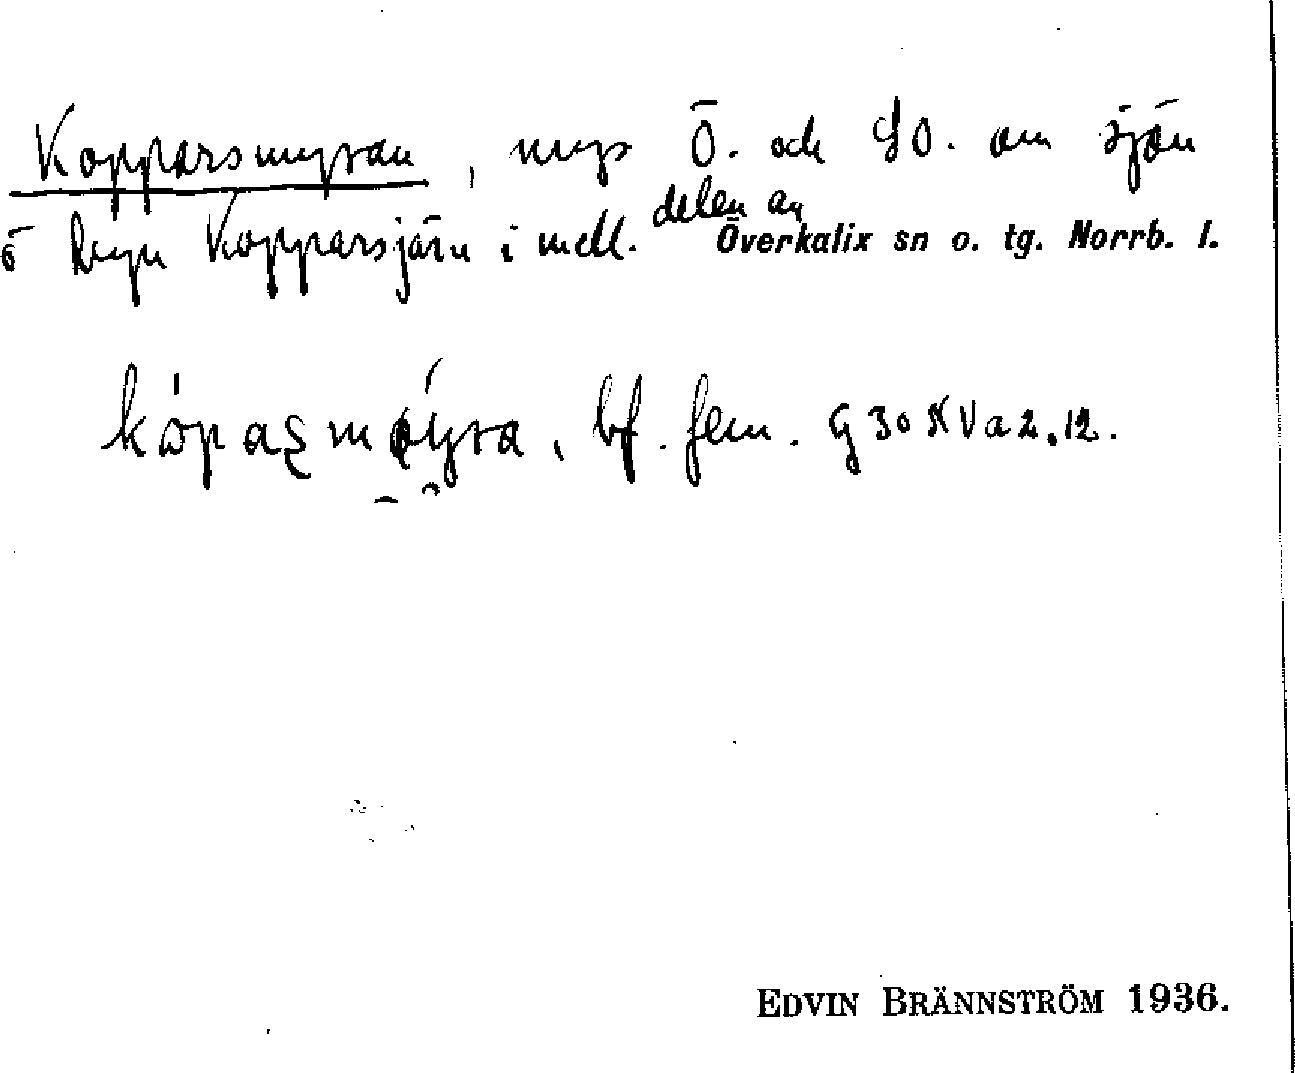 Kopparsmyran, myr Ö. och SO. om sjön
Kopparsjärn i mell. delen av Överkalix sn o. tg. Norrb. l.
bf. fem. G 30 XV a 2.12.
EDVIN BRÄNNSTRÖM 1936.